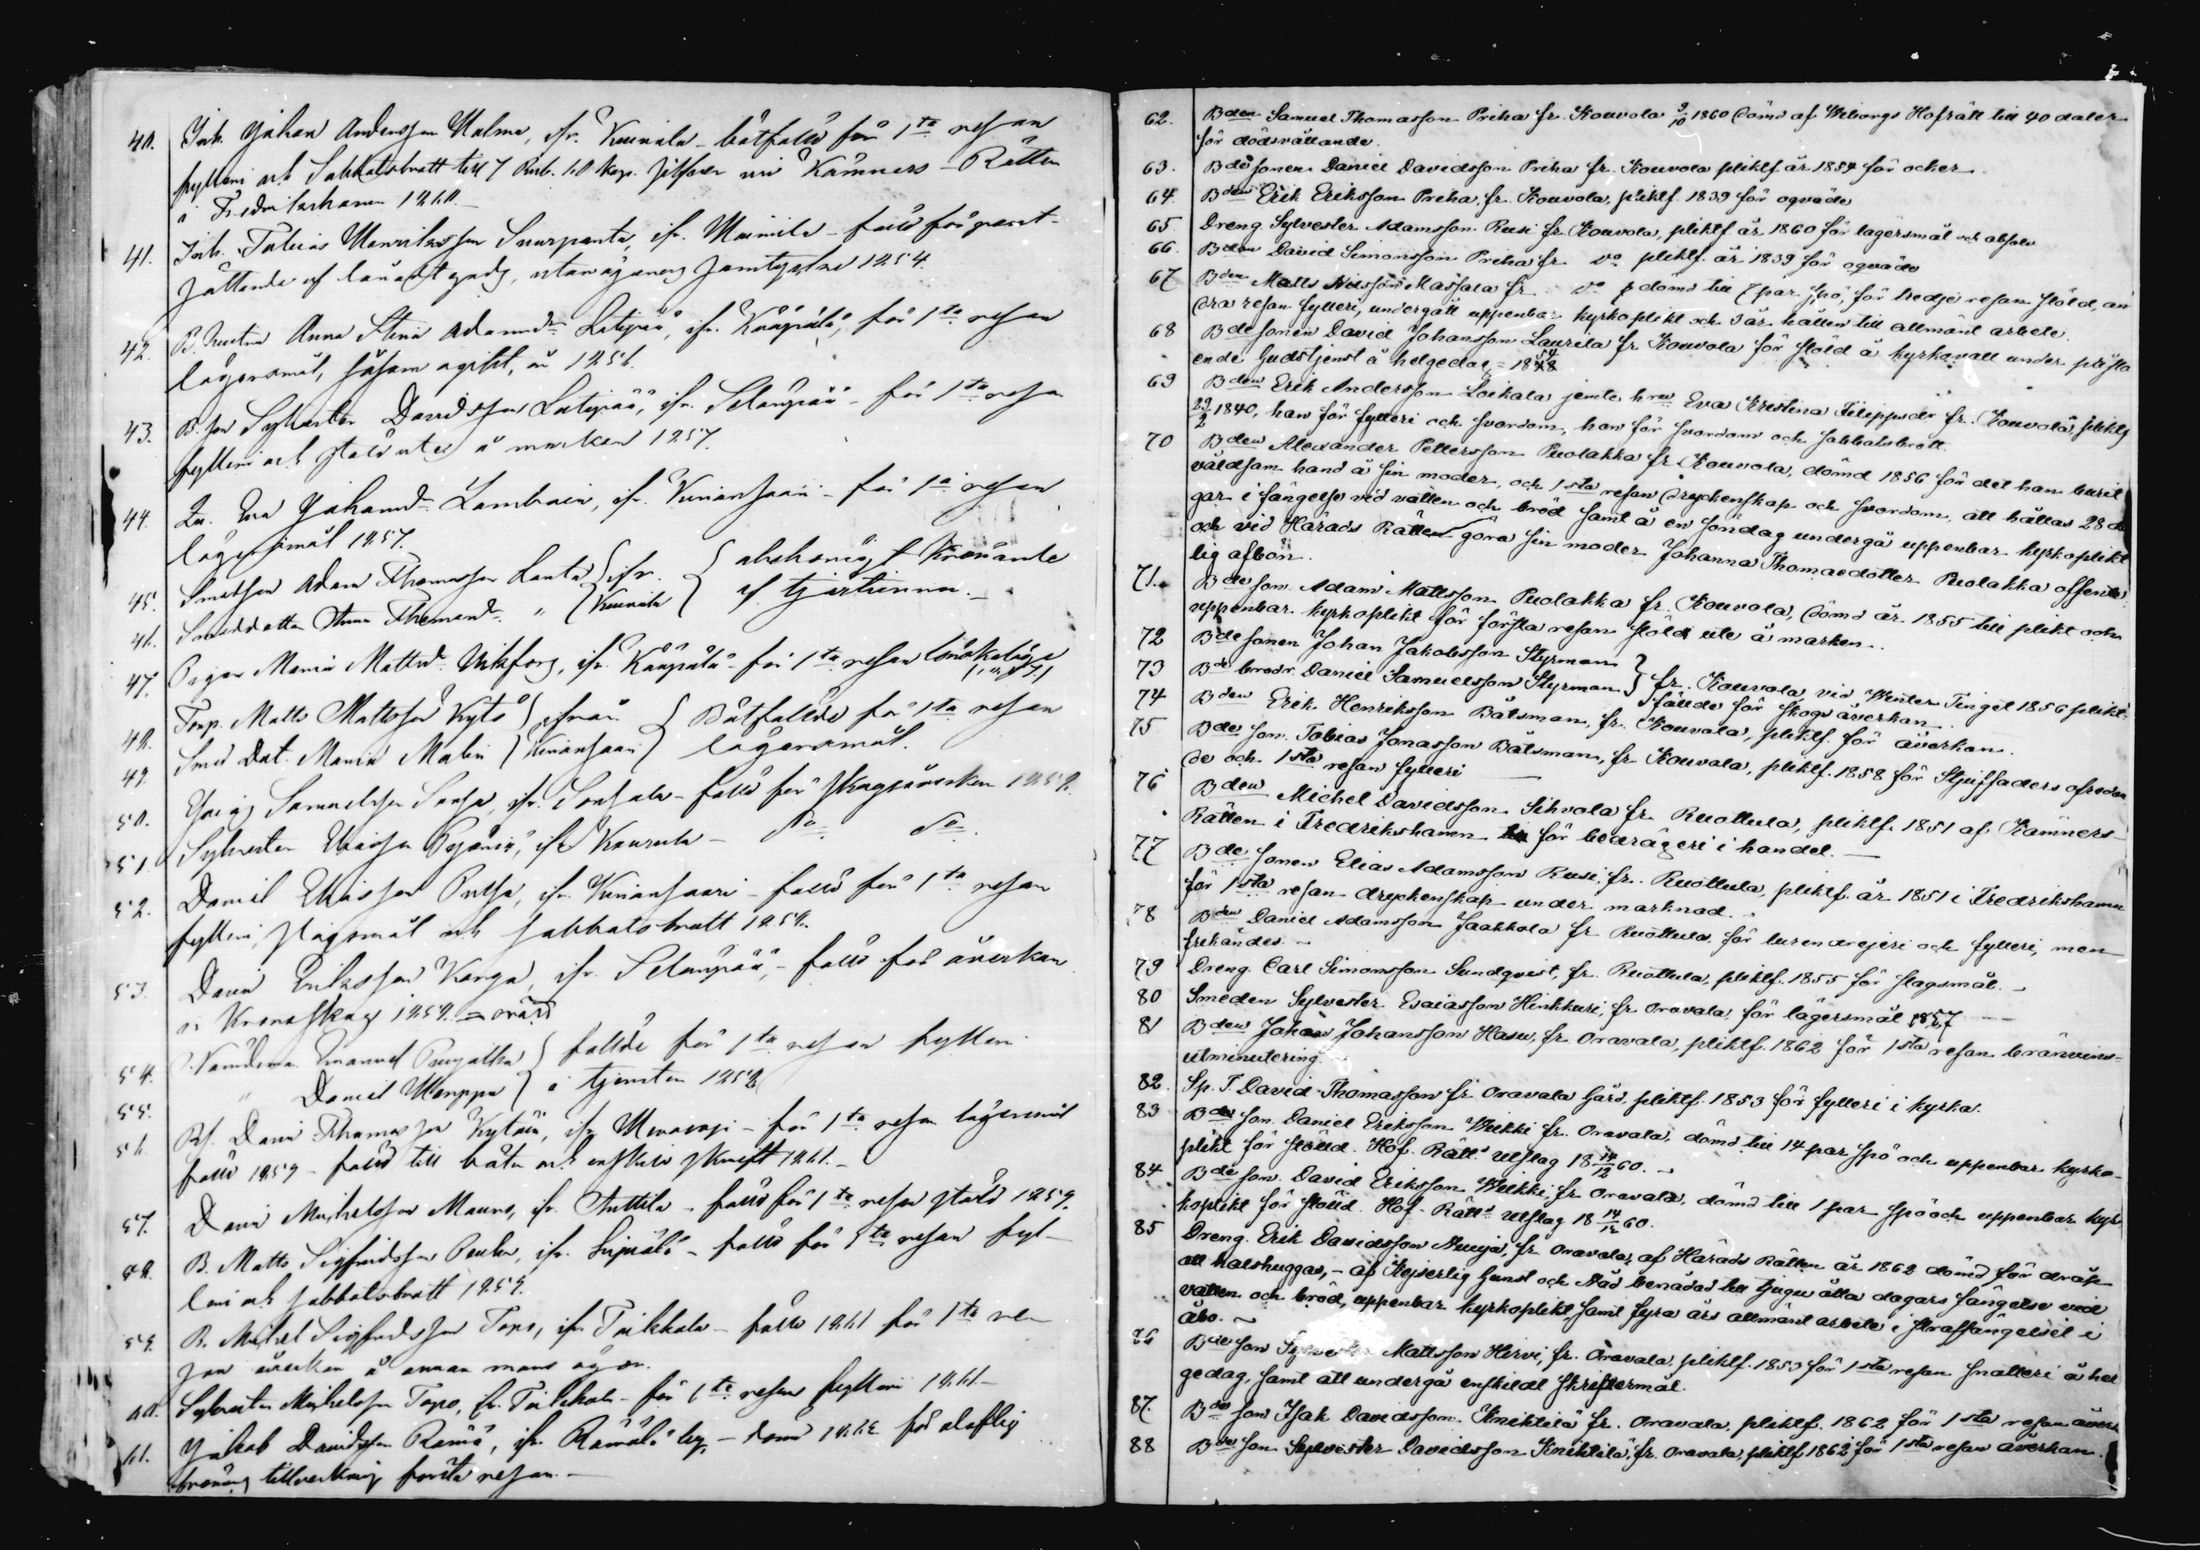 40. Inh. Johan Andersson Malmo, ifr. Kuivala - båtfälld för 1ta resan
fylleri och Sabbatsbrott till 7 Rub. 60 kop. Silfver vid Kämners-Rätten
i Fredrikshamn 1860.
41. Inh. Tobias Henriksson, ifr. - fälld för pant-
sättande af lånadt gods, utan ägarens samtycke 1854.
42. B. hustru Anna Stina Adamsdr, ifr. Kääpälä, för 1ta resan
lägersmål, såsom ogift, år 1856.
43. B. son Sylvester Davidsson, ifr. Selänpää - för 1ta resa
fylleri och stöld ute å marken 1857.
44. Eva Johansdr Lambain, ifr. Viriansaari - för 1ta resan
lägersmål 1857.
45. Smedson Adam Thomasson ifr.
46. Smeddotter Anna Thomasdr " Kuivala af
47. Pigan Maria Mattsdr Wikforg, ifr. Kääpälä - för 1ta resan lönskaläge
48. Torp. Matts Mattsson Kytö ifrån Båtfällde för 1ta resan
49. Smed Dot. Maria Malin Viriansaari lägersmål.
50. Samuelsson, ifr. - fälld för skogsåverkan 1858.
51. Sylvester Eliasson, ifr. Kourula - Do Do
52. Daniel Eliasson, ifr. Viriansaari - fälld för 1ta resan
fylleri, slagsmål och sabbatsbrott 1858.
53. David Eriksson Karga, ifr. Selänpää, - fälld för åverkan
å Kronoskog 1858.
54. Nämndeman Emanuel Pungalka fällde för 1ta resan fylleri
55. " Daniel Umppu i tjensten 1858
56. Bs. David Thomasson Kytöin, ifr. - för 1ta resan lägersmål
fälld 1859 - fälld till böter och enskild skrift 1861. -
57. David Michelsson Mauno, ifr. Anttila - fälld för 1ta resan stöld 1859.
58. B. Matts Sigfridsson, ifr. - fälld för 1ta resan fyl-
leri och sabbatsbrott 1859.
59. B. Michel Sigfridsson Topo, ifr. Toikkala - fälld 1861 för 1ta re-
san åverkan å annan mans ägor.
60. Sylvester Michelsson Topo, fr. Toikkala - för 1ta resan fylleri 1861 -
61. Jakob Davidsson Rämö, ifr. Rämälä by, - dömd 1862 för olaflig
bränvins tillverkning första resan. -
62. Bden Samuel Thomasson Preha fr. Kouvola 3/10 1860 dömd af Wiborgs Hofrätt till 40 daler
för dödsvållande.
63. Bdesonen Daniel Davidsson Preha fr. Kouvola pliktf. år 1854 för ocker.
64. Bden Erik Eriksson Preha, fr. Kouvola, pliktf. 1839 för oqväde
65 Dreng Sylvester Adamsson Rusi fr. Kouvola, pliktf. år 1860 för lägersmål och absolv
66. Bden David Simonsson Preha fr. Do pliktf. år 1839 för oqväde
67 Bden Matts Nilsson Massala fr. Do dömd till 7 par spö, för tredje resan stöld, an
dra resan fylleri, undergått uppenbar kyrkoplikt och 3 år hållen till allmänt arbete.
68 Bdesonen David Johansson Laurila fr Kouvola för stöld å kyrkovall under påstå
ende Gudstjenst å helgedag = 18
69 Bden Erik Andersson Loikala jemte hru Eva Kristina Filippsdr fr. Kouvola, pliktf
23/2 1840, han för fylleri och svordom, hon för svordom och sabbatsbrott.
70 Bden Alexander Pettersson Puolakka fr Kouvola, dömd 1856 för det han burit
våldsam hand å sin moder, och 1sta resan dryckenskap och svordom, att hållas 28 da
gar i fängelse vid vatten och bröd samt å en söndag undergå uppenbar kyrkoplikt
och vid Härads Rätten göra sin moder Johanna Thomasdotter Puolakka offent-
lig afbön.
71. Bdeson. Adam Mattsson Puolakka fr. Kouvola, dömd år 1855 till plikt och
uppenbar kyrkoplikt för första resan stöld ute å marken.
72 Bdesonen Johan Jakobsson Styrman
73 Bdebrodr. Daniel Samuelsson Styrman fr. Kouvola vid Winter Tinget 1856 plikt-
fällde för skogsåverkan.
74 Bden Erik Henriksson Båtsman, fr. Kouvola, pliktf. för åverkan.
75 Bdeson. Tobias Jonasson Båtsman, fr. Kouvola, pliktf. 1858 för Stjuffaders ofredan
de och 1sta resan fylleri
76 Bden Michel Davidsson Sihvola fr. Ruottula, pliktf. 1851 af Kämners-
Rätten i Fredrikshamn för bedrägeri i handel. -
77 Bdesonen Elias Adamsson Rusi, fr. Ruottula, pliktf. år 1851 i Fredrikshamn
för 1sta resan dryckenskap under marknad.
78 Bden Daniel Adamsson Jaakkola fr Ruottula, för lurendrejeri och fylleri, men
frikändes. -
79 Dreng. Carl Simonsson Sundqvist, fr. Ruottula, pliktf. 1855 för slagsmål. -
80 Smeden Sylvester Esaiasson Hinkkuri, fr. Oravala, för lägersmål 1857 -
81 Bden Johan Johansson Hasu, fr. Oravala, pliktf. 1862 för 1sta resan bränvins-
utminutering.
82. Sp. T. David Thomasson fr Oravala Gård, pliktf. 1853 för fylleri i kyrka.
83 Bdeson. Daniel Eriksson Wilkki fr. Oravala, dömd till 14 par spö och uppenbar kyrko-
plikt för stöld. Hof-Rätts utslag 18 14/12 60. -
84 Bdeson. David Eriksson Wilkki, fr Oravala, dömd till 1 par spö och uppenbar kyr-
koplikt för stöld. Hof-Rätts utslag 18 14/12 60.
85 Dreng. Erik Davidsson Nuija, fr. Oravala, af Härads Rätten år 1862 dömd för dråp
att halshuggas, - af Kejserlig Gunst och Nåd benådad till tjugu åtta dagars fängelse vid
vatten och bröd, uppenbar kyrkoplikt, samt fyra års allmänt arbete i straffängelset i
Åbo. -
86 Bdeson Sylvester Mattsson Hirvi, fr. Oravala, pliktf. 1853 för 1sta resan snatteri å hel
gedag, samt att undergå enskildt skriftermål.
87. Bdeson Isak Davidsson Kniktilä fr. Oravala, pliktf. 1862 för 1sta resan åver
88 Bdeson Sylvester Davidsson Kniktilä, fr. Oravala, pliktf. 1862 för 1sta resan åverkan.